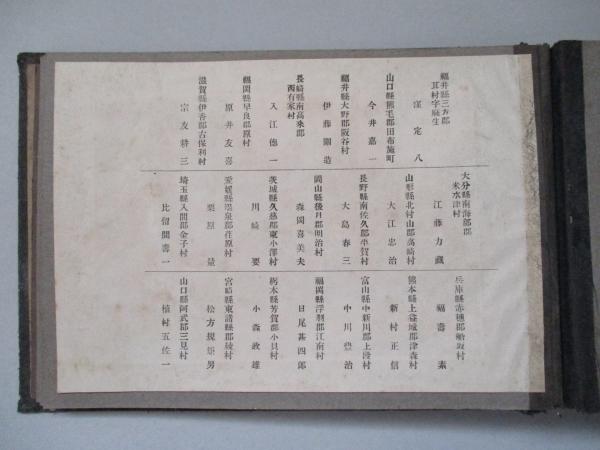 福井縣三方郡
耳村字麻生
窪定八
山口縣熊毛郡田布施町
今井嘉一
福井縣大野郡阪谷村
伊藤剛造
長崎縣南高來郡
西有家村
入江德一
福岡縣早良郡原村
原井友喜
滋賀縣伊香郡古保利村
宗友耕三
大分縣南海部郡
米水津村
江藤力藏
山形縣北村山郡高崎村
大江忠治
長野縣南佐久郡平賀村
大島春三
岡山縣後月郡明治村
森岡喜美夫
茨城縣久慈郡東小澤村
川崎要
愛媛縣溫泉郡荏原村
栗原量
埼玉縣入間郡金子村
比留間壽一
兵庫縣赤穗郡船坂村
福壽素
熊本縣上益城郡津森村
新村正信
富山縣中新川郡上段村
中川豊治
福岡縣浮羽郡江南村
日尾甚四郎
栃木縣芳賀郡小貝村
小森政雄
宮崎縣東諸縣郡綾村
松方規矩男
山口縣阿武郡三見村
植村五佐一